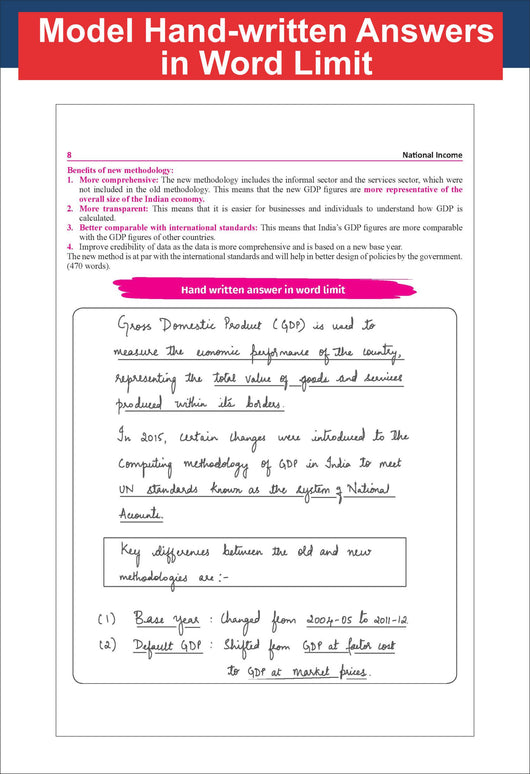 Model Hand-written Answers
in Word Limit
8 National Income
Benefits of new methodology:
1. More comprehensive: The new methodology includes the informal sector and the services sector, which were
not included in the old methodology. This means that the new GDP figures are more representative of the
overall size of the Indian economy.
2. More transparent: This means that it is easier for businesses and individuals to understand how GDP is
calculated.
3. Better comparable with international standards: This means that India's GDP figures are more comparable
with the GDP figures of other countries.
4. Improve credibility of data as the data is more comprehensive and is based on a new base year.
The new method is at par with the international standards and will help in better design of policies by the government.
(470 words).
Hand written answer in word limit
Gross Domestic Product (GDP) is used to
measure the economic performance of the country,
representing the total value of goods and services
produced within its borders.
In 2015, certain changes were introduced to the
computing methodology of GDP in India to meet
UN standards known as the system of National
Accounts.
Key differences between the old and new
methodologies are :-
(1) Base year : Changed from 2004-05 to 2011-12
(2) Default GDP : Shifted from GDP at factor cost
to GDP at market prices.